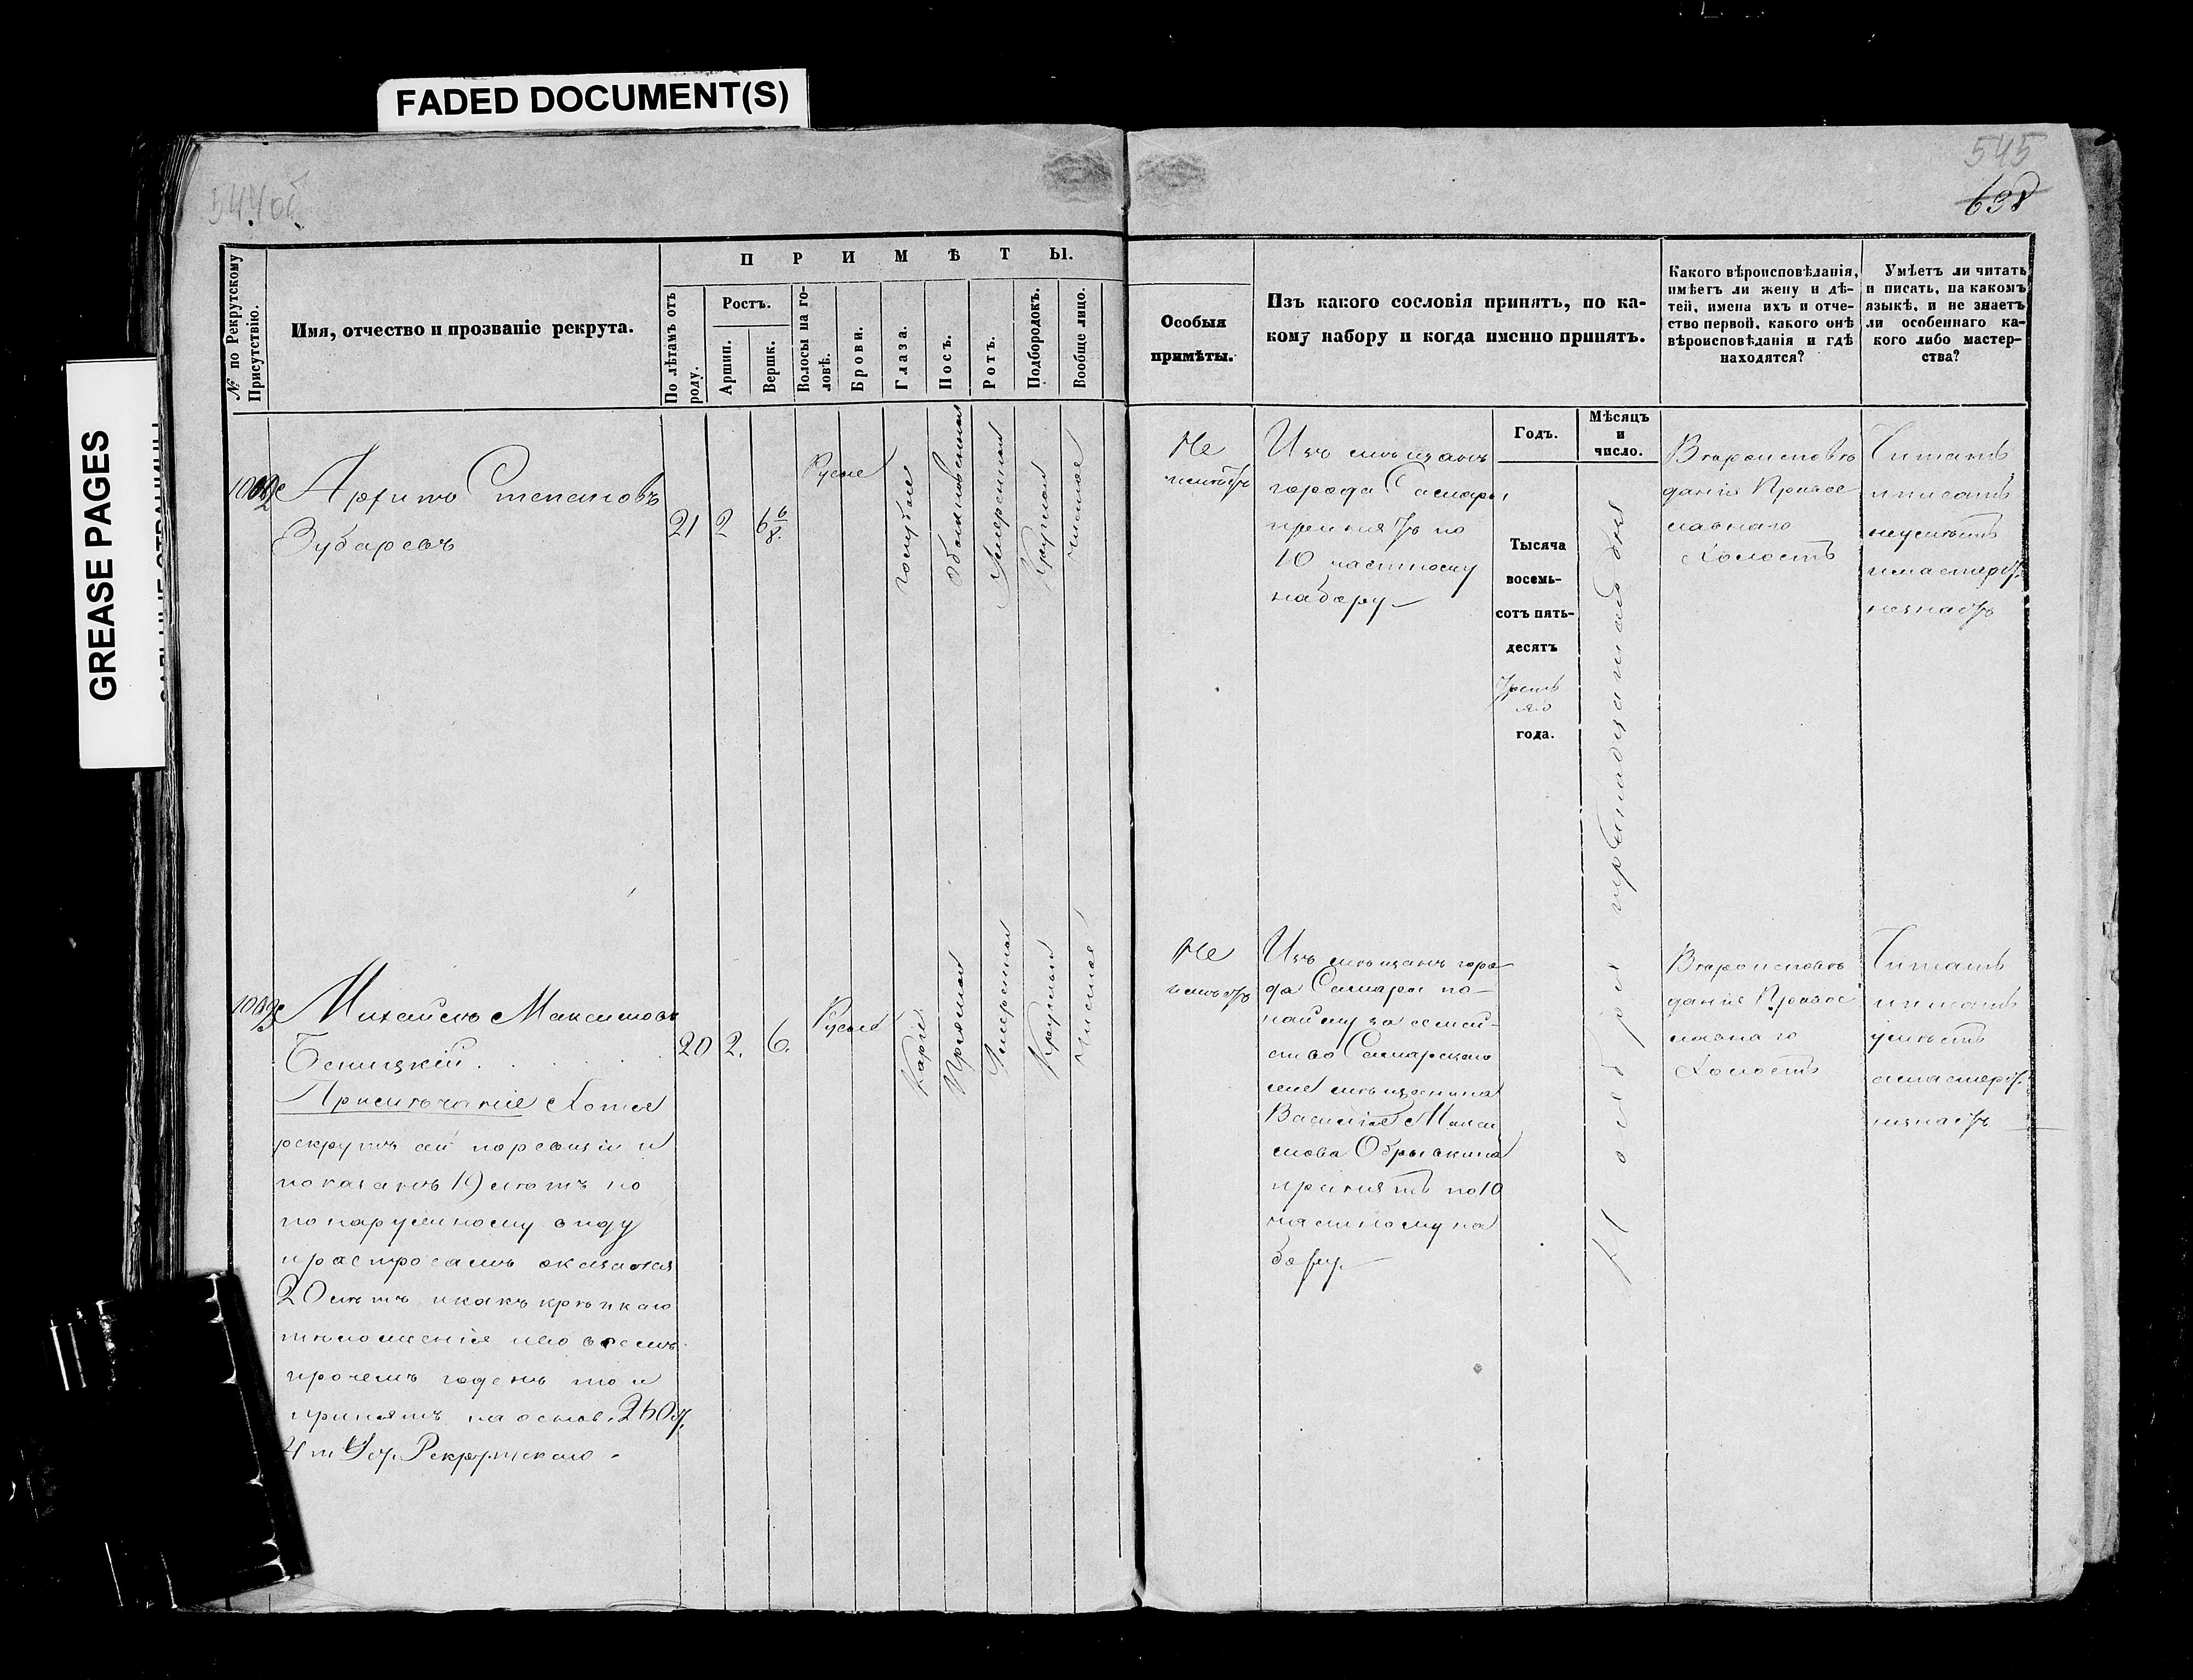 FADED DOCUMENT(S)
GREASE PAGES
544об
545
638
№ по Рекрутскому Присутствію.
Имя, отчество и прозваніе рекрута.
ПРИМѢТЫ.
По лѣтамъ отъ роду.
Ростъ.
Аршин.
Вершк.
Волосы на головѣ.
Брови.
Глаза.
Носъ.
Ротъ.
Подбородокъ.
Вообще лицо.
Особыя
примѣты.
Изъ какого сословія принятъ, по ка-
кому набору и когда именно принятъ.
Какого вѣроисповѣданія,
имѣетъ ли жену и дѣ-
тей, имена ихъ и отче-
ство первой, какого онѣ
вѣроисповѣданія и гдѣ
находятся?
Умѣетъ ли читать
и писать, на какомъ
языкѣ, и не знаетъ
ли особеннаго ка-
кого либо мастер-
ства?
Годъ.
Мѣсяцъ
и
число.
Архипъ Степановъ
Зубаревъ
21
2
6 6/8.
Русые
голубые
обыкновенный
Умеренный
Круглый
чистое
Не
имѣетъ
Изъ мѣщанъ
города Самары
принятъ по
10 частному
набору
Тысяча
восемь-
сотъ пять-
десятъ
третьяго
года.
Ноября тринадцатаго дня
Вѣроисповѣ
данія Правос
лавнаго
Холостъ
Читать
и писать
неумѣетъ
имастерст.
незнаетъ
Михайло Максимовъ
Беницкій.
Примѣчаніе Хотя
рекрутъ сей поревизіи и
показанъ 19 лѣтъ но
по наружному виду
ираспросамъ оказался
20 лѣтъ икакъ крѣпкаго
тѣлосложенія иво всемъ
прочемъ годенъ то и
принятъ на основ. 260 ст.
4 т Уст. Рекрутскаго.
20
2.
6.
Русые
Каріе
Прямой
Умеренный
Круглый
Чистое
Не
имѣетъ
Изъ мѣщанъ горо
да Самары по
найму за семей-
ство Самарскаго
же мѣщанина
Василія Макси
мова Обрывкина
принятъ по 10
частному на
бору.
Вѣроисповѣ
данія Правос
лавнаго
Холостъ
Читать
и писать
умѣетъ
амастерст.
незнаетъ